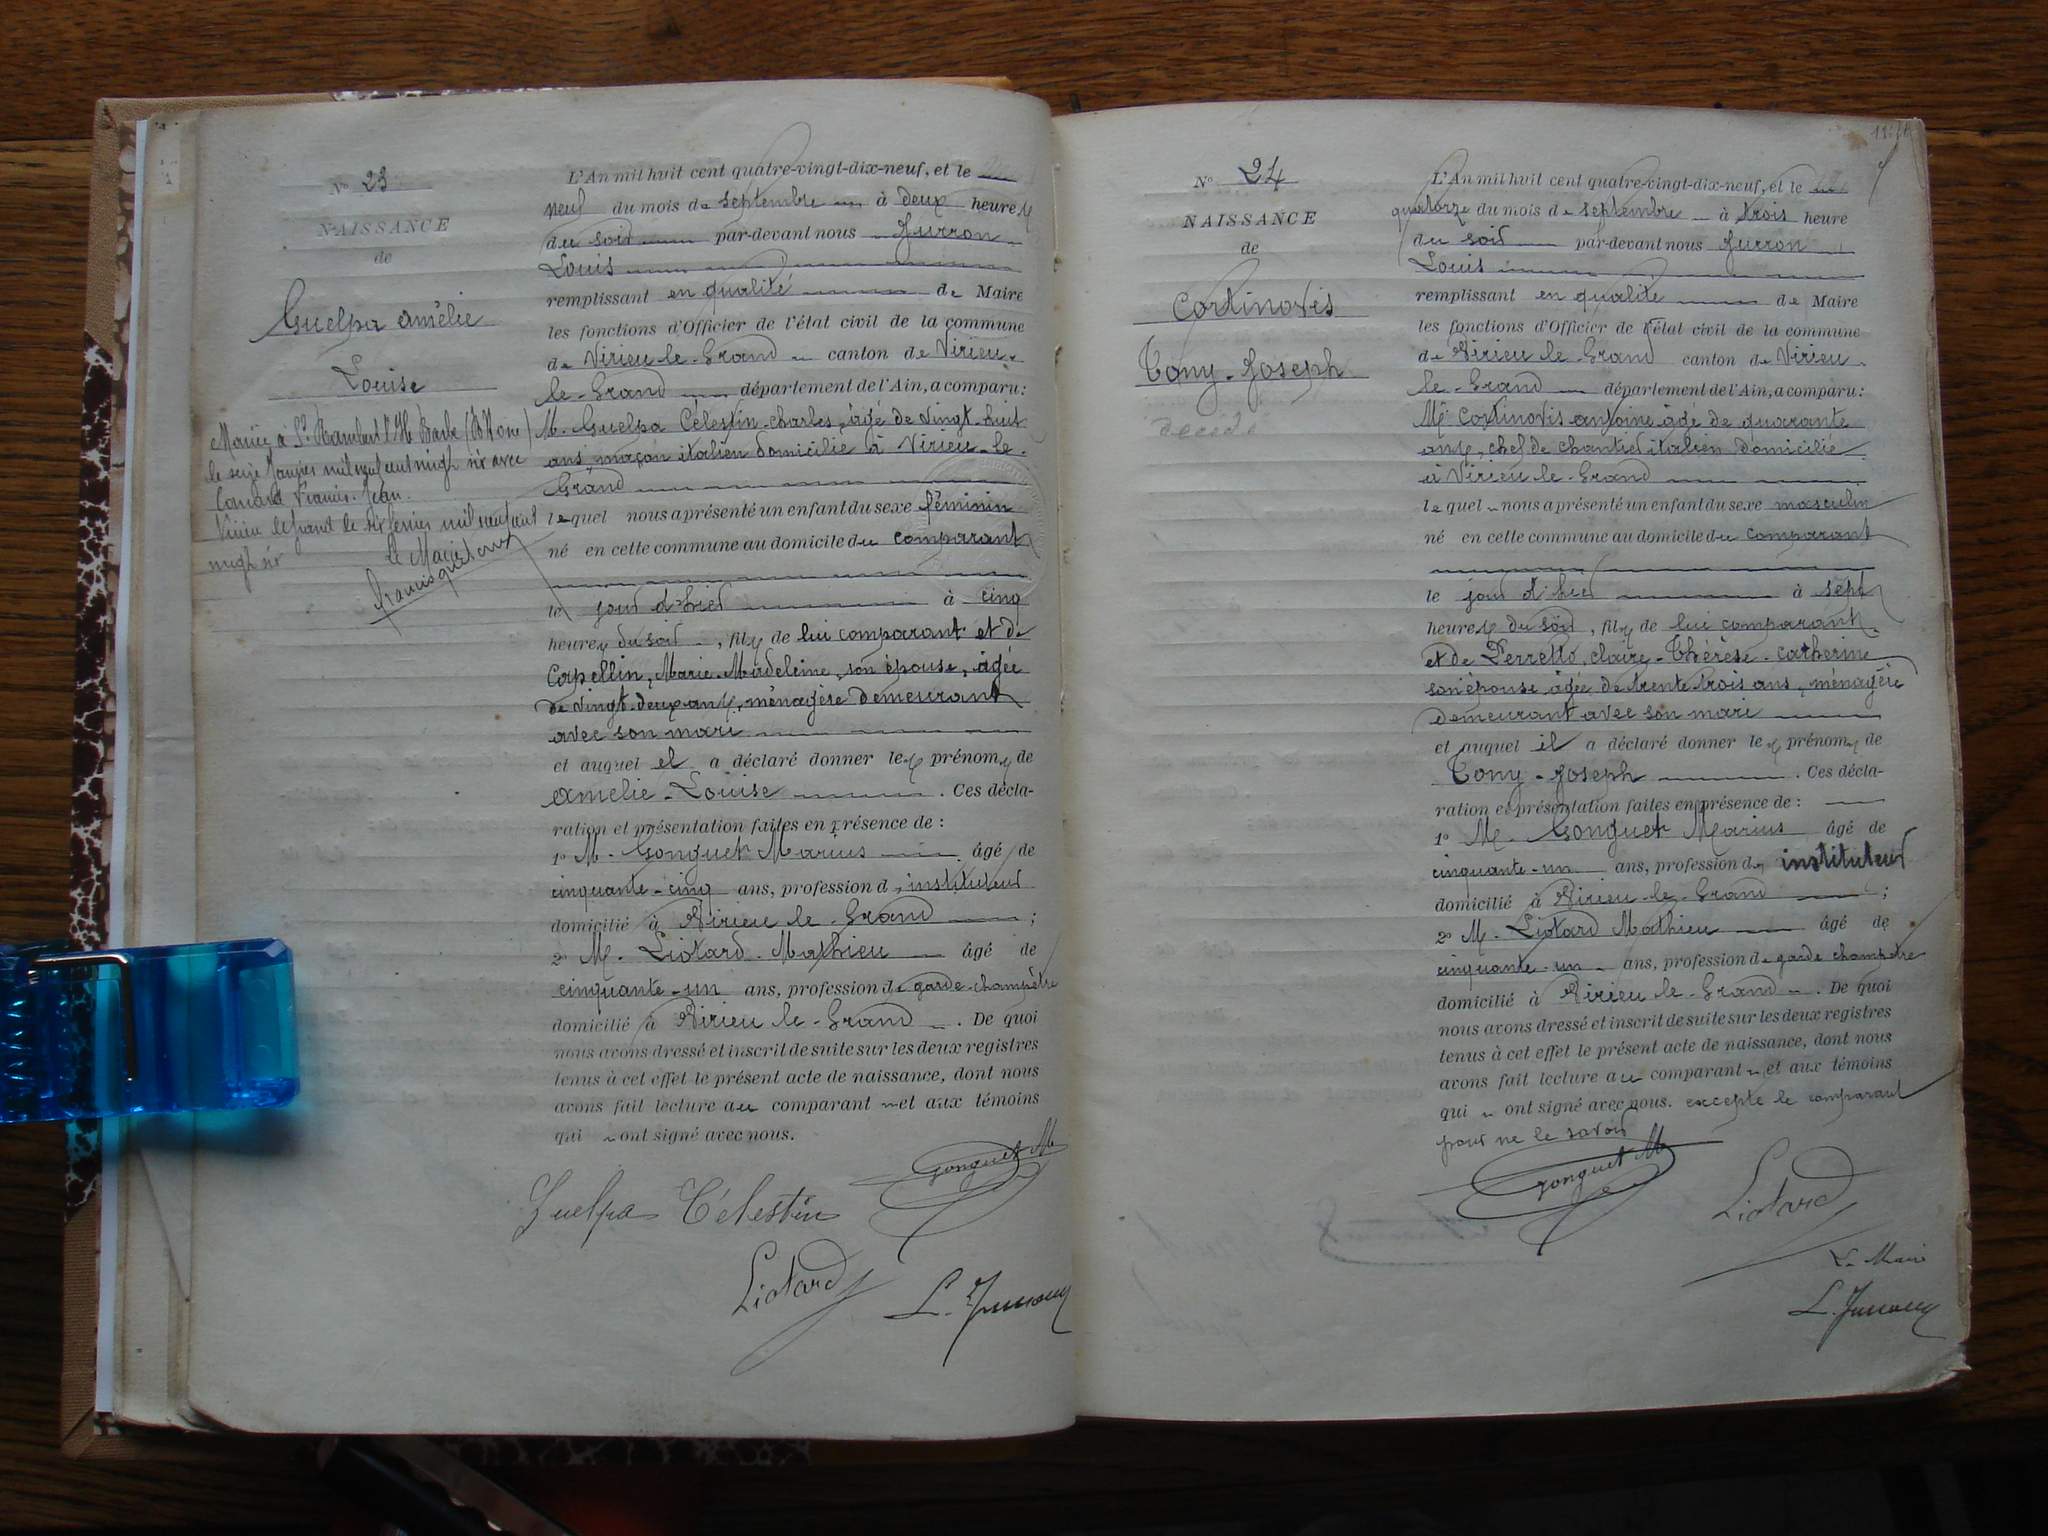 N° 23
NAISSANCE
de
Guelpa amélie
Louise
Mariée à St Rambert l'Ile Barbe (Rhône)
le seize Janvier mil neuf cent vingt six avec
Francis Jean.
Virieu le Grand le six février mil neuf cent
vingt six
Le Maire
L'An mil huit cent quatre-vingt-dix-neuf, et le
neuf du mois de septembre à deux heures
du soir par-devant nous Jurron
Louis
remplissant en qualité de Maire
les fonctions d'Officier de l'état civil de la commune
de Virieu-le-Grand canton de Virieu-
le-Grand département de l'Ain, a comparu:
M. Guelpa Célestin-Charles, âgé de vingt-huit
ans, maçon italien domicilié à Virieu-le-
Grand
lequel nous a présenté un enfant du sexe féminin
né en cette commune au domicile du comparant
le jour d'hier à cinq
heures du soir, fils de lui comparant et de
Capellin, Marie-Madeleine, son épouse, âgée
de vingt-deux ans, ménagère demeurant
avec son mari
et auquel il a déclaré donner les prénoms de
amélie-Louise. Ces décla-
ration et présentation failes en présence de :
1° M. Gonguet Marius âgé de
cinquante-cinq ans, profession d'instituteur
domicilié à Virieu-le-Grand ;
2° M. Liotard Mathieu âgé de
cinquante-un ans, profession de garde-champêtre
domicilié à Virieu-le-Grand. De quoi
nous avons dressé et inscrit de suite sur les deux registres
tenus à cet effet le présent acte de naissance, dont nous
avons fait lecture au comparant et aux témoins
qui ont signé avec nous.
Gonguet M
Guelpa Célestin
Liotard
L. Jurron
N° 24
NAISSANCE
de
Cortinovis
Tony-Joseph
décédé
L'An mil huit cent quatre-vingt-dix-neuf, et le
quatorze du mois de septembre à trois heure
du soir par-devant nous Jurron
Louis
remplissant en qualité de Maire
les fonctions d'Officier de l'état civil de la commune
de Virieu-le-Grand canton de Virieu-
le-Grand département de l'Ain, a comparu:
M. Cortinovis antoine âgé de quarante
ans, chef de chantier italien domicilié
à Virieu-le-Grand
lequel nous a présenté un enfant du sexe masculin
né en cette commune au domicile du comparant
le jour d'hier à sept
heures du soir, fils de lui comparant
et de Perretto, claire-Thérèse-catherine
son épouse âgée de trente-trois ans, ménagère
demeurant avec son mari
et auquel il a déclaré donner les prénoms de
Tony-Joseph. Ces décla-
ration et présentation failes en présence de :
1° M. Gonguet Marius âgé de
cinquante-un ans, profession d'instituteur
domicilié à Virieu-le-Grand ;
2° M. Liotard Mathieu âgé de
cinquante-un ans, profession de garde champêtre
domicilié à Virieu-le-Grand. De quoi
nous avons dressé et inscrit de suite sur les deux registres
tenus à cet effet le présent acte de naissance, dont nous
avons fait lecture au comparant et aux témoins
qui ont signé avec nous. excepté le comparant
pour ne le savoir
Gonguet M
Liotard
Le Maire
L. Jurron